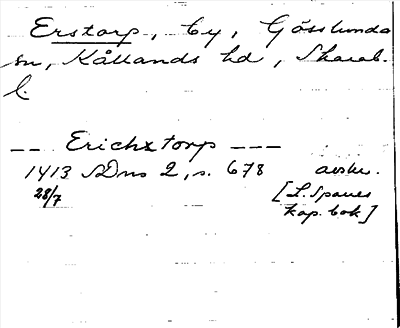 Erstorp, by, Gösslunda
sn, Kållands hd, Skarab.
l.
-- Erichxtorp ---
1413 SDns 2, s. 678 avskr.
28/7 [L. Spaues
kop. bok]